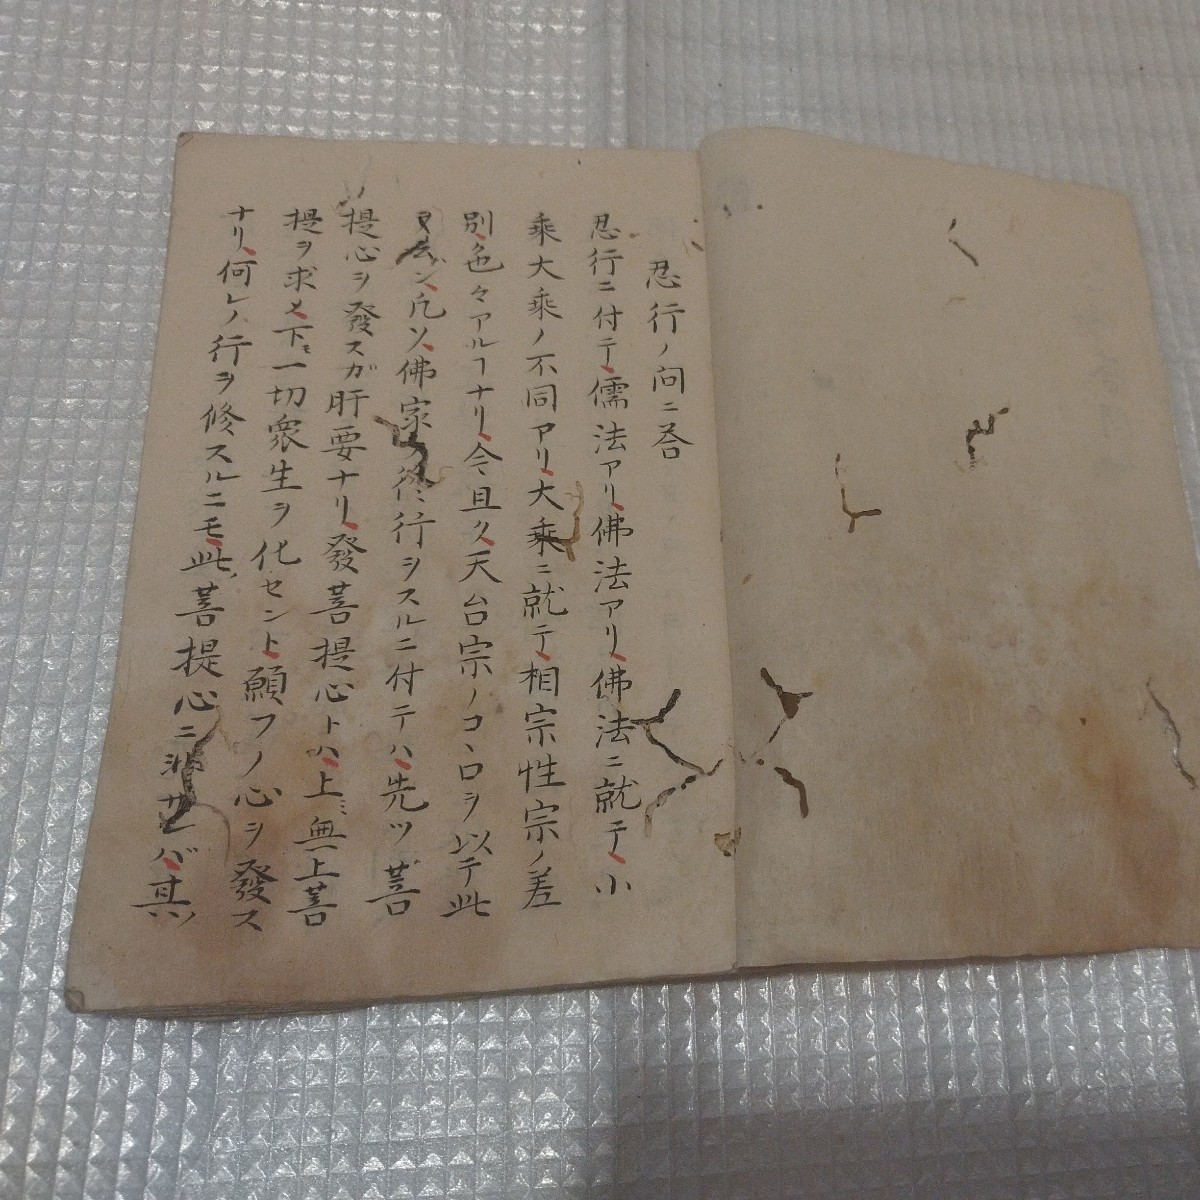 忍行ノ問ニ荅
忍行ニ付テ儒法アリ佛法アリ佛法ニ就テ小
乘大乘ノ不同アリ大乘ニ就テ相宗性宗ノ差
別色々アルヿナリ今且ク天台宗ノコヽロヲ以テ此
ヲ云ン凡ソ佛家ノ修行ヲスルニ付テハ先ツ菩
提心ヲ發スガ肝要ナリ發菩提心トハ上ミ無上菩
提ヲ求メ下モ一切衆生ヲ化セント願フノ心ヲ發ス
ナリ何レノ行ヲ修スルニモ此菩提心ニ非サレバ其